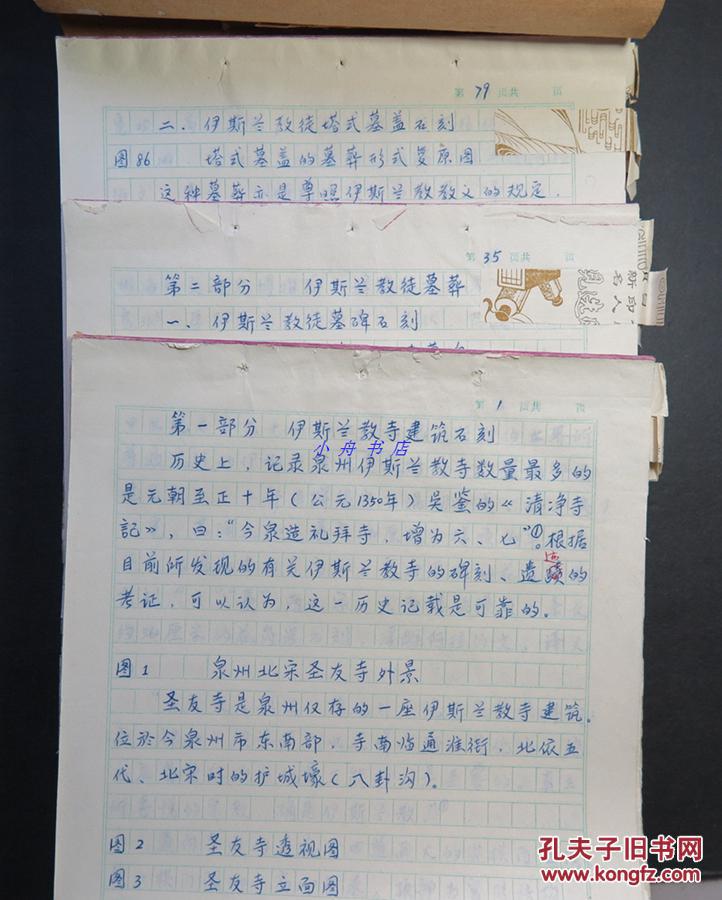 第 79 页共 页
二、伊斯兰教徒塔式墓盖石刻
图86 塔式墓盖的墓葬形式复原图
这种墓葬亦是尊照伊斯兰教教义的规定.
第 35 页共 页
第二部分 伊斯兰教徒墓葬
一、伊斯兰教徒墓碑石刻
第 1 页共 页
第一部分 伊斯兰教寺建筑石刻
小舟书店
历史上，记录泉州伊斯兰教寺数量最多的
是元朝至正十年（公元1350年）吴鉴的《清净寺
記》，曰："今泉造礼拜寺，增为六、七"①。根据
目前所发现的有关伊斯兰教寺的碑刻、遗迹的
考证，可以认为，这一历史记载是可靠的.
图1 泉州北宋圣友寺外景
圣友寺是泉州仅存的一座伊斯兰教寺建筑。
位於今泉州市东南部，寺南临通淮街，北依五
代、北宋时的护城壕（八卦沟）。
图2 圣友寺透视图
图3 圣友寺立面图
孔夫子旧书网
www.kongfz.com